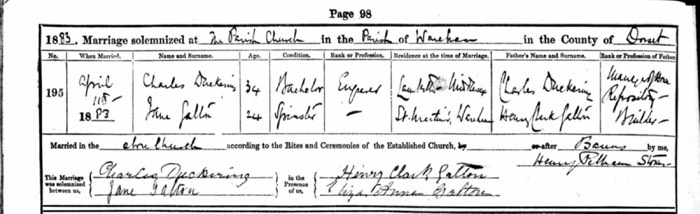 Page 98
1883. Marriage solemnized at The Parish Church in the Parish of Wareham in the County of Dorset
No. When Married. Name and Surname. Age. Condition. Rank or Profession. Residence at the time of Marriage. Father's Name and Surname. Rank or Profession of Father.
195 April 11th 1883 Charles Duckering 34 Bachelor Engineer Lambeth Charles Duckering Manager Repository
Jane Gatton 24 Spinster — St. Martin's, Wareham Henry Clark Gatton Builder
Married in the above Church according to the Rites and Ceremonies of the Established Church, by or after Banns by me,
Henry Pelham
This Marriage was solemnized between us, Charles Duckering Jane Gatton in the Presence of us, Henry Clark Gatton Eliza Anna Gatton